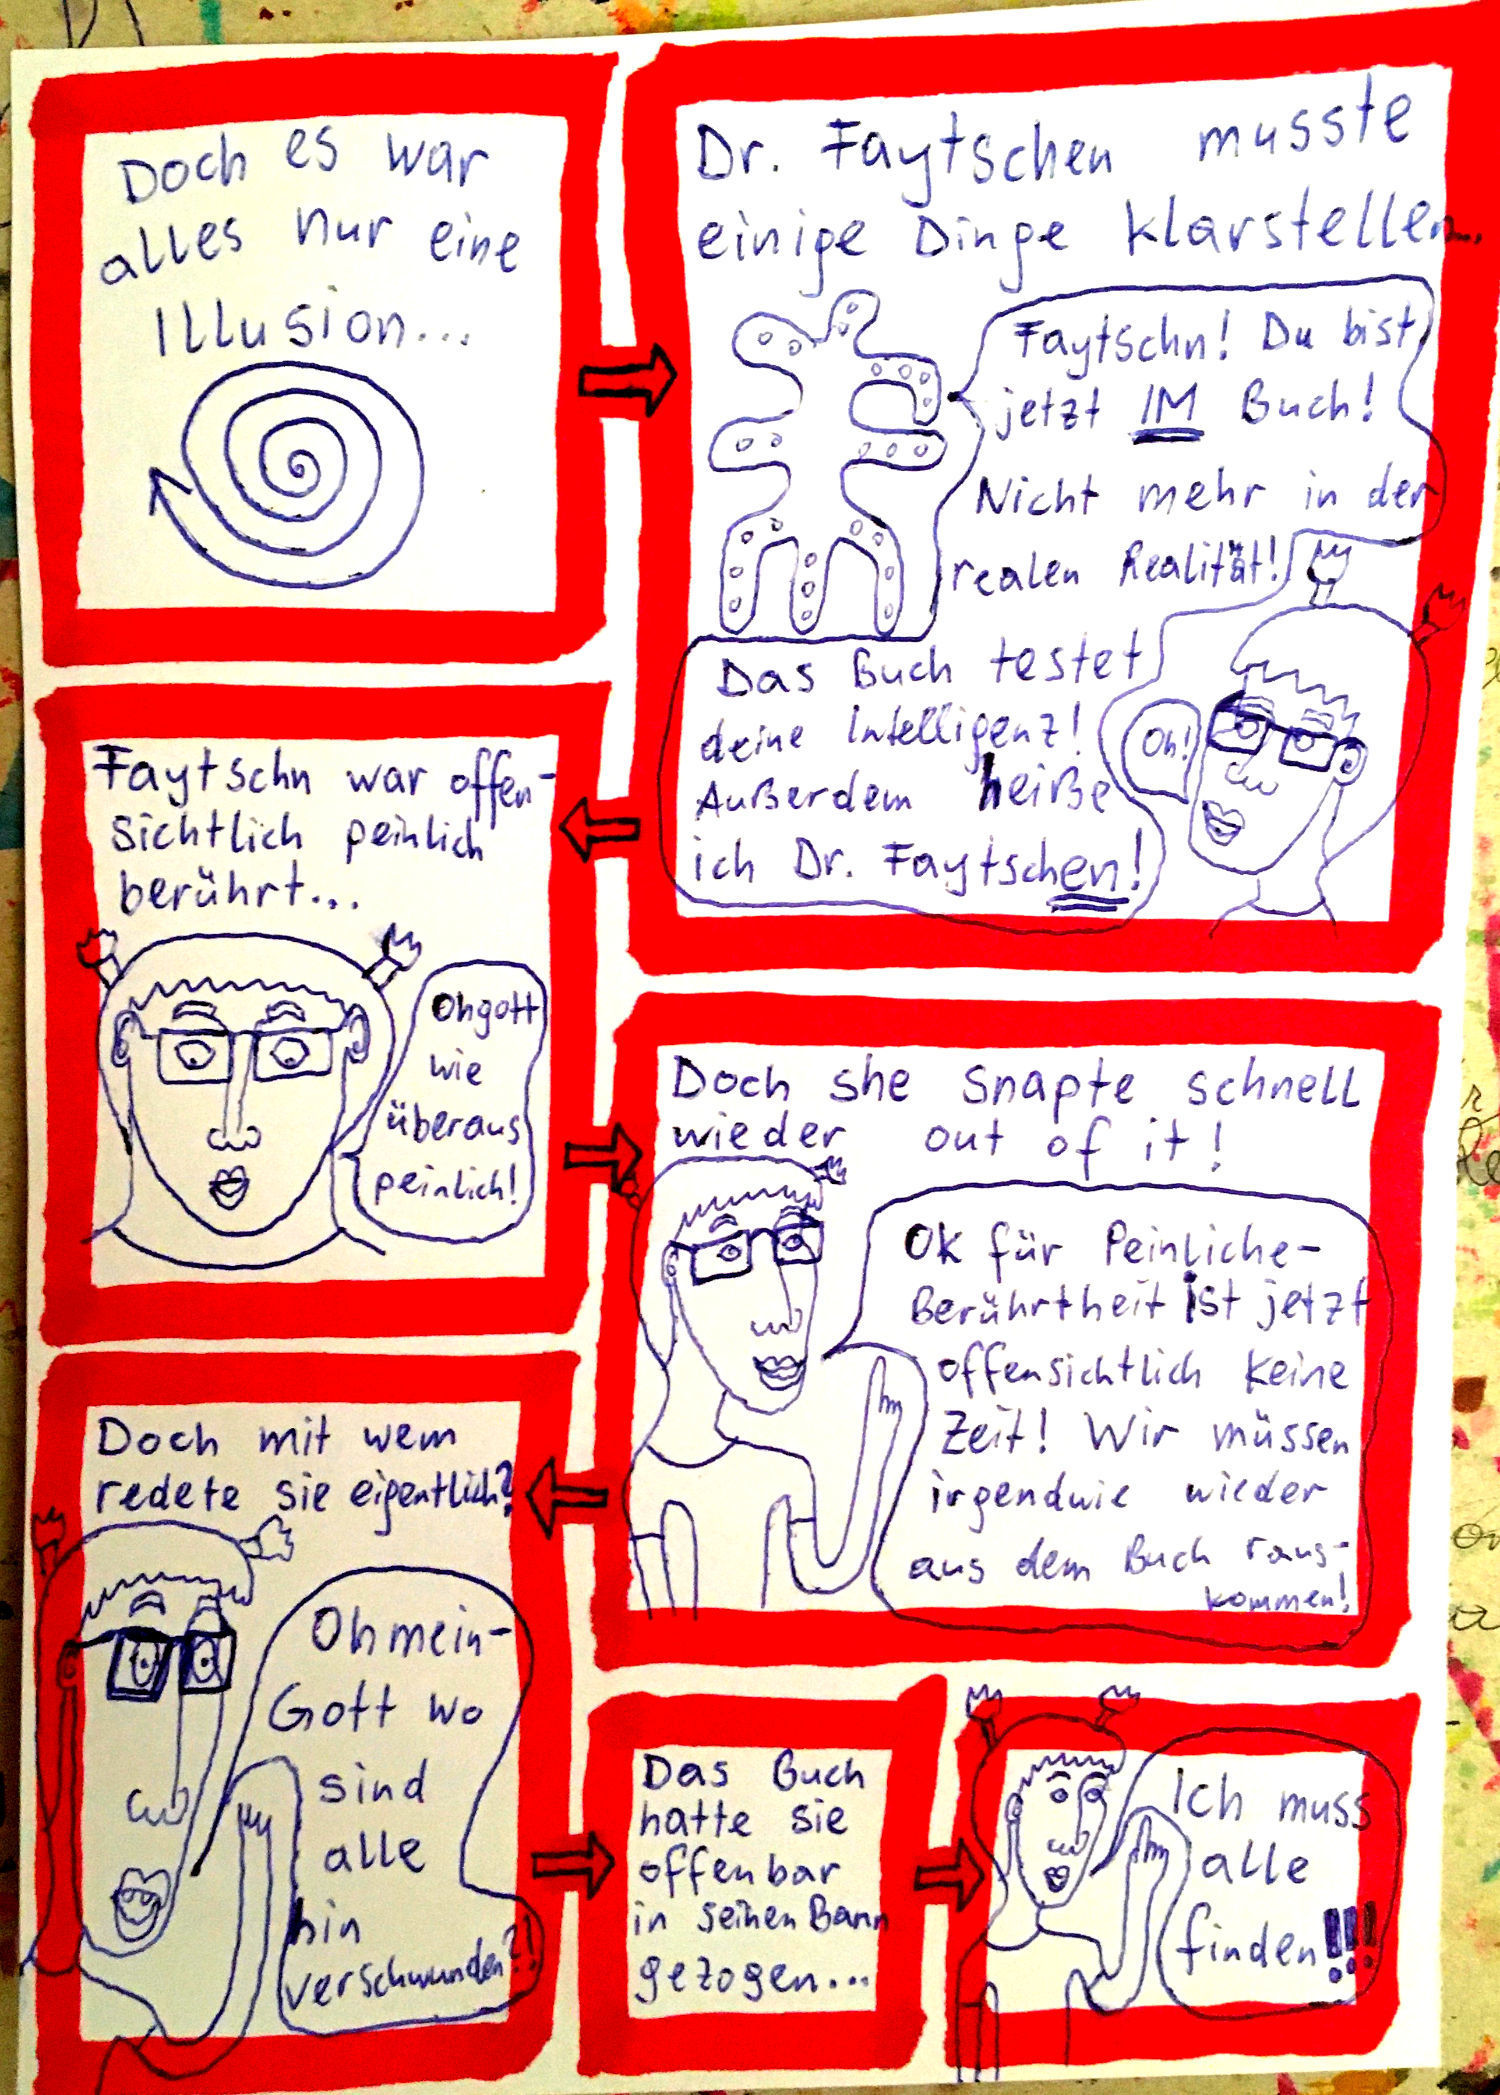 Doch es war
alles nur eine
Illusion...
Dr. Faytschen musste
einige Dinge klarstellen...
Faytschn! Du bist
jetzt IM Buch!
Nicht mehr in der
realen Realität!
Das Buch testet
deine Intelligenz!
Außerdem heiße
ich Dr. Faytschen!
Oh!
Faytschn war offen-
sichtlich peinlich
berührt...
Ohgott
wie
überaus
peinlich!
Doch she snapte schnell
wieder out of it!
Ok für Peinliche-
Berührtheit ist jetzt
offensichtlich keine
Zeit! Wir müssen
irgendwie wieder
aus dem Buch raus-
kommen!
Doch mit wem
redete sie eigentlich?
Ohmein-
Gott wo
sind
alle
hin
verschwunden?!
Das Buch
hatte sie
offenbar
in seinen Bann
gezogen...
Ich muss
alle
finden!!!